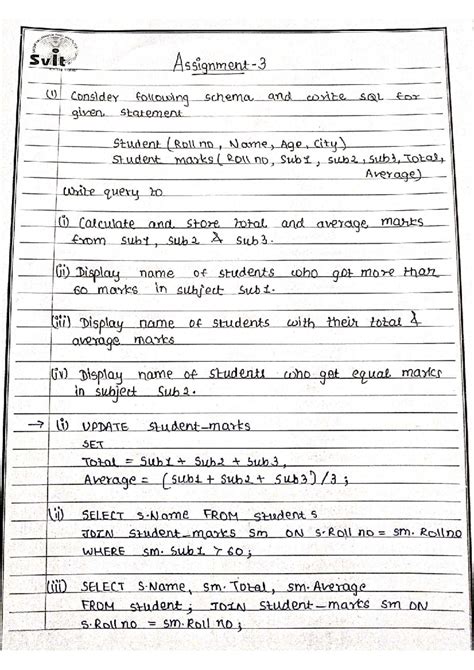 Svit
Assignment-3
(1) Consider following schema and write SQL for
given statement
Student (Roll no, Name, Age, City)
Student marks (Roll no, Sub1, sub2, sub3, Total,
Average)
Write query to
(i) Calculate and store total and average marks
from sub1, sub2 & sub3.
(ii) Display name of students who got more than
60 marks in subject sub1.
(iii) Display name of students with their total &
average marks
(iv) Display name of students who get equal marks
in subject Sub2.
→ (i) UPDATE student_marks
SET
Total = Sub1 + Sub2 + Sub3,
Average = (sub1 + Sub2 + Sub3) / 3;
(ii) SELECT s.Name FROM student s
JOIN student_marks sm ON s.Roll no = sm. Rollno
WHERE sm. Sub1 > 60;
(iii) SELECT s.Name, sm. Total, sm. Average
FROM student; JOIN student_marks sm ON
s.Roll no = sm.Roll no;